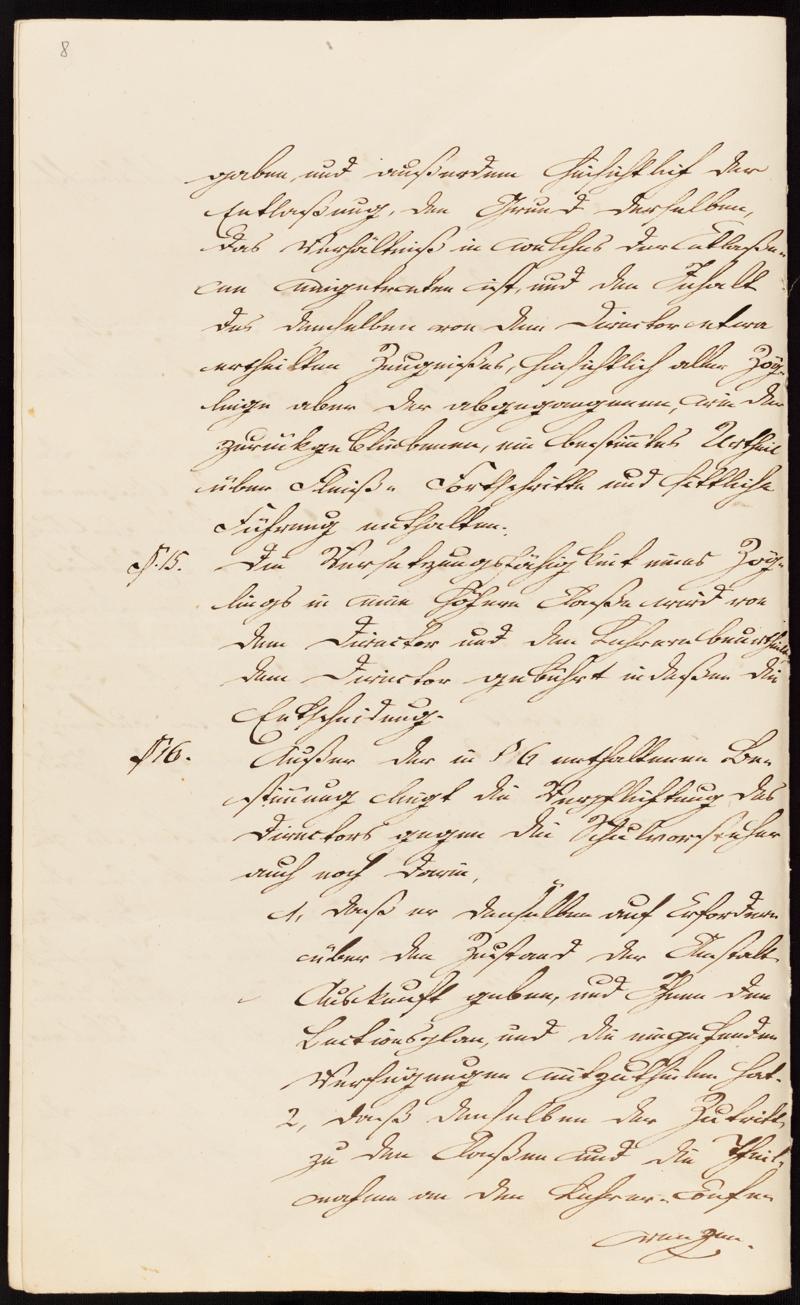 8
gaben, und außerdem hinsichtlich der
Entlaßung, den Grund derselben,
das Verhältniß in welches der Entlaße-
ne eingetreten ist, und den Inhalt
des demselben von dem Director etwa
ertheilten Zeugnißes, hinsichtlich aller Zög-
linge aber der abgegangenen, wie der
zurückgebliebenen, ein bestimtes Urtheil
über Fleiß- Fortschritte und sittliche
Führung enthalten.
§.15. Die Versetzungsfähigkeit eines Zög-
lings in eine höhere Claße wird von
dem Director und den Lehrern beurtheilt
dem Director gebührt indeßen die
Entscheidung.
§16. Außer der in §6 enthaltenen Be-
stimung liegt die Verpflichtung des
Directors gegen die Schulvorsteher
auch noch darin,
1, daß er denselben auf Erfordern
über den Zustand der Anstalt
Auskunft geben, und Ihnen den
Lectionsplan, und die eingehenden
Verfügungen mitzutheilen hat.
2, daß denselben der Zutritt
zu den Claßen und die Theil-
nahme an den Lehrer-Confe-
renzen.